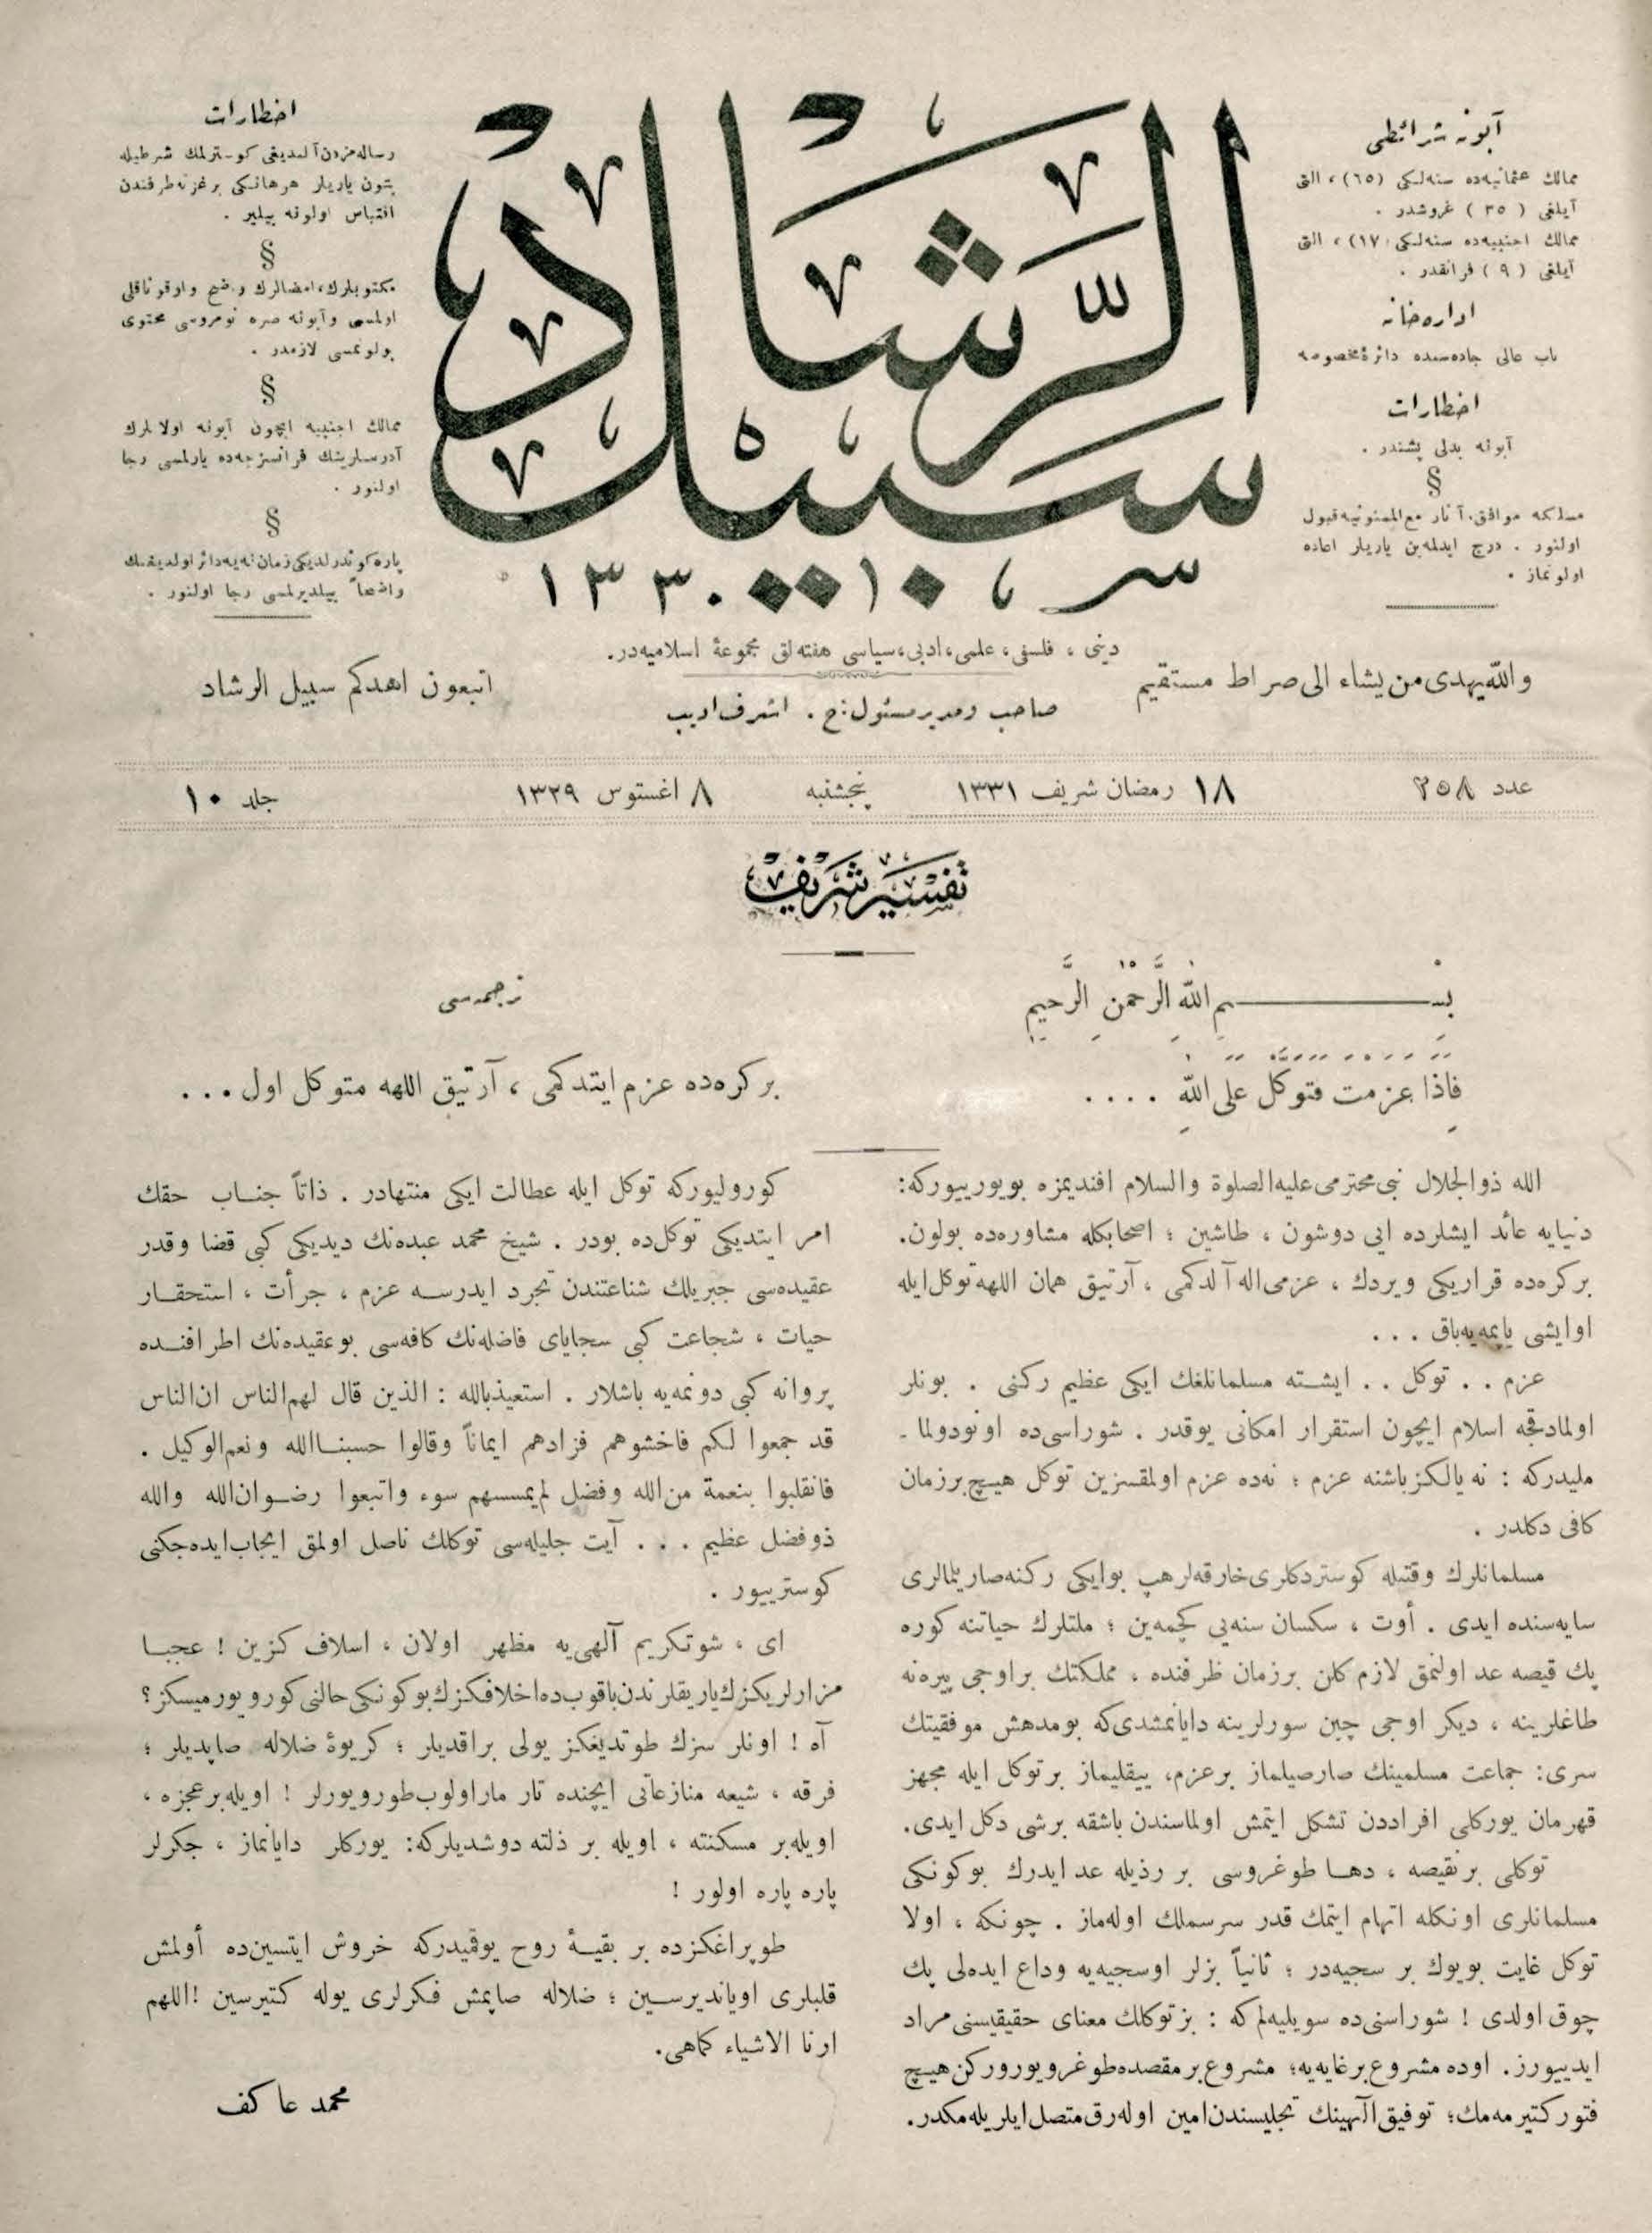 آبونه شرائطی
ممالك عثمانیه‌ده سنه‌لكی (٦٥) ، التی
آیلغی ( ٣٥ ) غروشدر .
ممالك اجنبیه‌ده سنه‌لكی (١٧) ، التی
آیلغی ( ٩ ) فرانقدر .
اداره‌خانه
باب عالی جاده‌سنده دائرۀ مخصوصه
اخطارات
آبونه بدلی پشیندر .
§
مسلكه موافق آثار مع‌الممنونیه قبول
اولنور . درج ایدلمه‌ین یازیلر اعاده
اولونماز .
سبیل الرشاد
سر ١٠ ١٣٣٠
اخطارات
رساله‌مزدن آلندیغی كوسترلمك شرطیله
بتون یازیلر هرهانكی بر غزته طرفندن
اقتباس اولونه بیلیر .
§
مكتوبلرك، امضالرك واضح واوقوناقلی
اولمسی وآبونه صره نومروسی محتوی
بولونمسی لازمدر .
§
ممالك اجنبیه ایچون آبونه اولانلرك
آدرسلرینك فرانسزجه‌ده یازلمسی رجا
اولنور .
§
پاره كوندرلدیكی زمان نه‌یه دائر اولدیغنك
واضحاً بیلدیرلمسی رجا اولنور .
دینی ، فلسفی ، علمی ، ادبی ، سیاسی هفته‌لق مجموعۀ اسلامیه‌در.
والله یهدی من یشاء الی صراط مستقیم
صاحب ومدیر مسئول : ح . اشرف ادیب
اتبعون اهدكم سبیل الرشاد
عدد ٢٥٨
١٨ رمضان شریف ١٣٣١
پنجشنبه
٨ اغستوس ١٣٢٩
جلد ١٠
تفسیر شریف
بِسْمِ اللهِ الرَّحْمٰنِ الرَّحیمِ
فَاِذَا عَزَمْتَ فَتَوَكَّلْ عَلَی اللهِ . . . .
ترجمه‌سی
بر كره‌ده عزم ایتدكمی ، آرتیق اللهه متوكل اول . . .
الله ذوالجلال نبی محترمی علیه الصلوة والسلام افندیمزه بویورییوركه:
دنیایه عائد ایشلرده ایی دوشون ، طاشین ؛ اصحابكله مشاوره‌ده بولون.
بر كره‌ده قراریكی ویردك ، عزمی اله آلدكمی ، آرتیق همان اللهه توكل ایله
اوایشی یاپمه‌یه باق . . .
عزم . . توكل . . ایشته مسلمانلغك ایكی عظیم ركنی . بونلر
اولمادقجه اسلام ایچون استقرار امكانی یوقدر . شوراسی‌ده اونودولما -
ملیدركه : نه یالكز باشنه عزم ؛ نه‌ده عزم اولمقسزین توكل هیچ برزمان
كافی دكلدر .
مسلمانلرك وقتیله كوستردكلری خارقه‌لر هپ بوایكی ركنه صاریلمالری
سایه‌سنده ایدی . أوت ، سكسان سنه‌یی كچمه‌ین ؛ ملتلرك حیاتنه كوره
پك قیصه عد اولنمق لازم كلن برزمان ظرفنده ، مملكتك براوجی پیره‌نه
طاغلرینه ، دیكر اوجی چین سورلرینه دایانمشدی‌كه بو مدهش موفقیتك
سری: جماعت مسلمینك صارصیلماز برعزم، ییقلیماز برتوكل ایله مجهز
قهرمان یوركلی افراددن تشكل ایتمش اولماسندن باشقه برشی دكل ایدی.
توكلی برنقیصه ، دها طوغروسی بر رذیله عد ایدرك بوكونكی
مسلمانلری اونكله اتهام ایتمك قدر سرسملك اوله‌ماز . چونكه ، اولا
توكل غایت بویوك بر سجیه‌در ؛ ثانیاً بزلر اوسجیه‌یه وداع ایده‌لی پك
چوق اولدی ! شوراسنی‌ده سویلیه‌لم كه : بز توكلك معنای حقیقیسنی مراد
ایدییورز. اوده مشروع برغایه‌یه؛ مشروع برمقصده طوغرو یوروركن هیچ
فتور كتیرمه‌مك؛ توفیق آلهینك تجلیسندن امین اوله‌رق متصل ایلریله‌مكدر.
كورولیوركه توكل ایله عطالت ایكی منتهادر . ذاتاً جناب حقك
امر ایتدیكی توكل‌ده بودر . شیخ محمد عبده‌نك دیدیكی كبی قضا وقدر
عقیده‌سی جبریلك شناعتندن تجرد ایدرسه عزم ، جرأت ، استحقار
حیات ، شجاعت كبی سجایای فاضله‌نك كافه‌سی بوعقیده‌نك اطرافنده
پروانه كبی دونمه‌یه باشلار . استعیذبالله : الذین قال لهم الناس ان الناس
قد جمعوا لكم فاخشوهم فزادهم ایماناً وقالوا حسبنا الله ونعم الوكیل .
فانقلبوا بنعمة من الله وفضل لم یمسسهم سوء واتبعوا رضوان الله والله
ذوفضل عظیم . . . آیت جلیله‌سی توكلك ناصل اولمق ایجاب ایده‌جكنی
كوسترییور .
ای ، شو تكریم آلهی‌یه مظهر اولان ، اسلاف كزین ! عجبا
مزارلریكزك یاریقلرندن باقوب‌ده اخلافكزك بوكونكی حالنی كورویورمیسكز؟
آه ! اونلر سزك طوتدیغكز یولی براقدیلر ؛ كریوۀ ضلاله صاپدیلر ؛
فرقه ، شیعه منازعاتی ایچنده تار مار اولوب طورویورلر ! اویله برعجزه ،
اویله‌بر مسكنته ، اویله بر ذلته دوشدیلركه: یوركلر دایانماز ، جكرلر
پاره پاره اولور !
طوپراغكزده بر بقیۀ روح یوقمیدركه خروش ایتسین‌ده أولمش
قلبلری اویاندیرسین ؛ ضلاله صاپمش فكرلری یوله كتیرسین ! اللهم
ارنا الاشیاء كماهی.
محمد عاكف